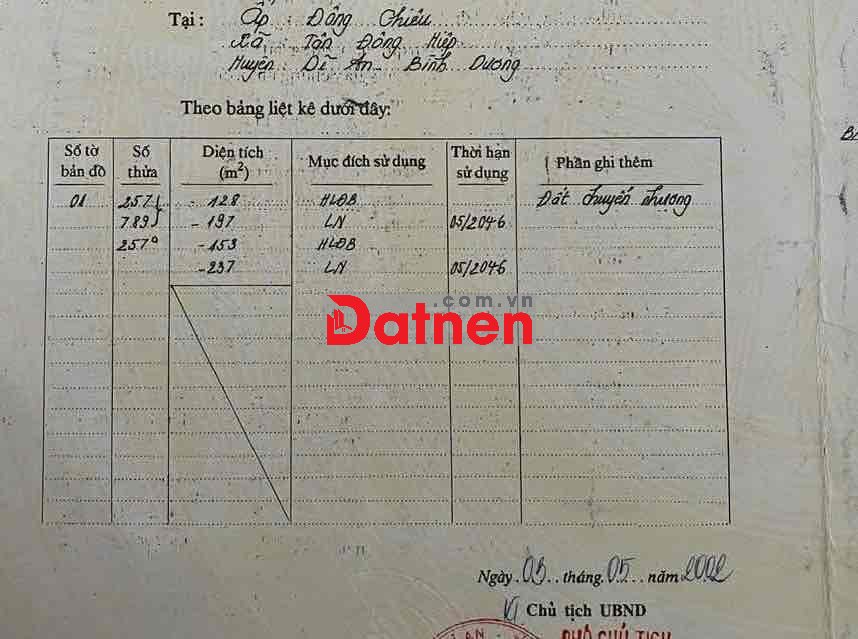 Tại: Ấp : Đông Chiêu
Xã : Tân Đông Hiệp
Huyện: Dĩ An Bình Dương
Theo bảng liệt kê dưới đây:
Số tờ bản đồ Số thửa Diện tích (m²) Mục đích sử dụng Thời hạn sử dụng Phần ghi thêm
01 257 - 128 HLĐB Đất chuyển nhượng
789 - 197 LN 05/2046
257 - 153 HLĐB
- 237 LN 05/2046
Datnen.com.vn
Ngày 03 tháng 05 năm 2002
Chủ tịch UBND
PHÓ CHỦ TỊCH